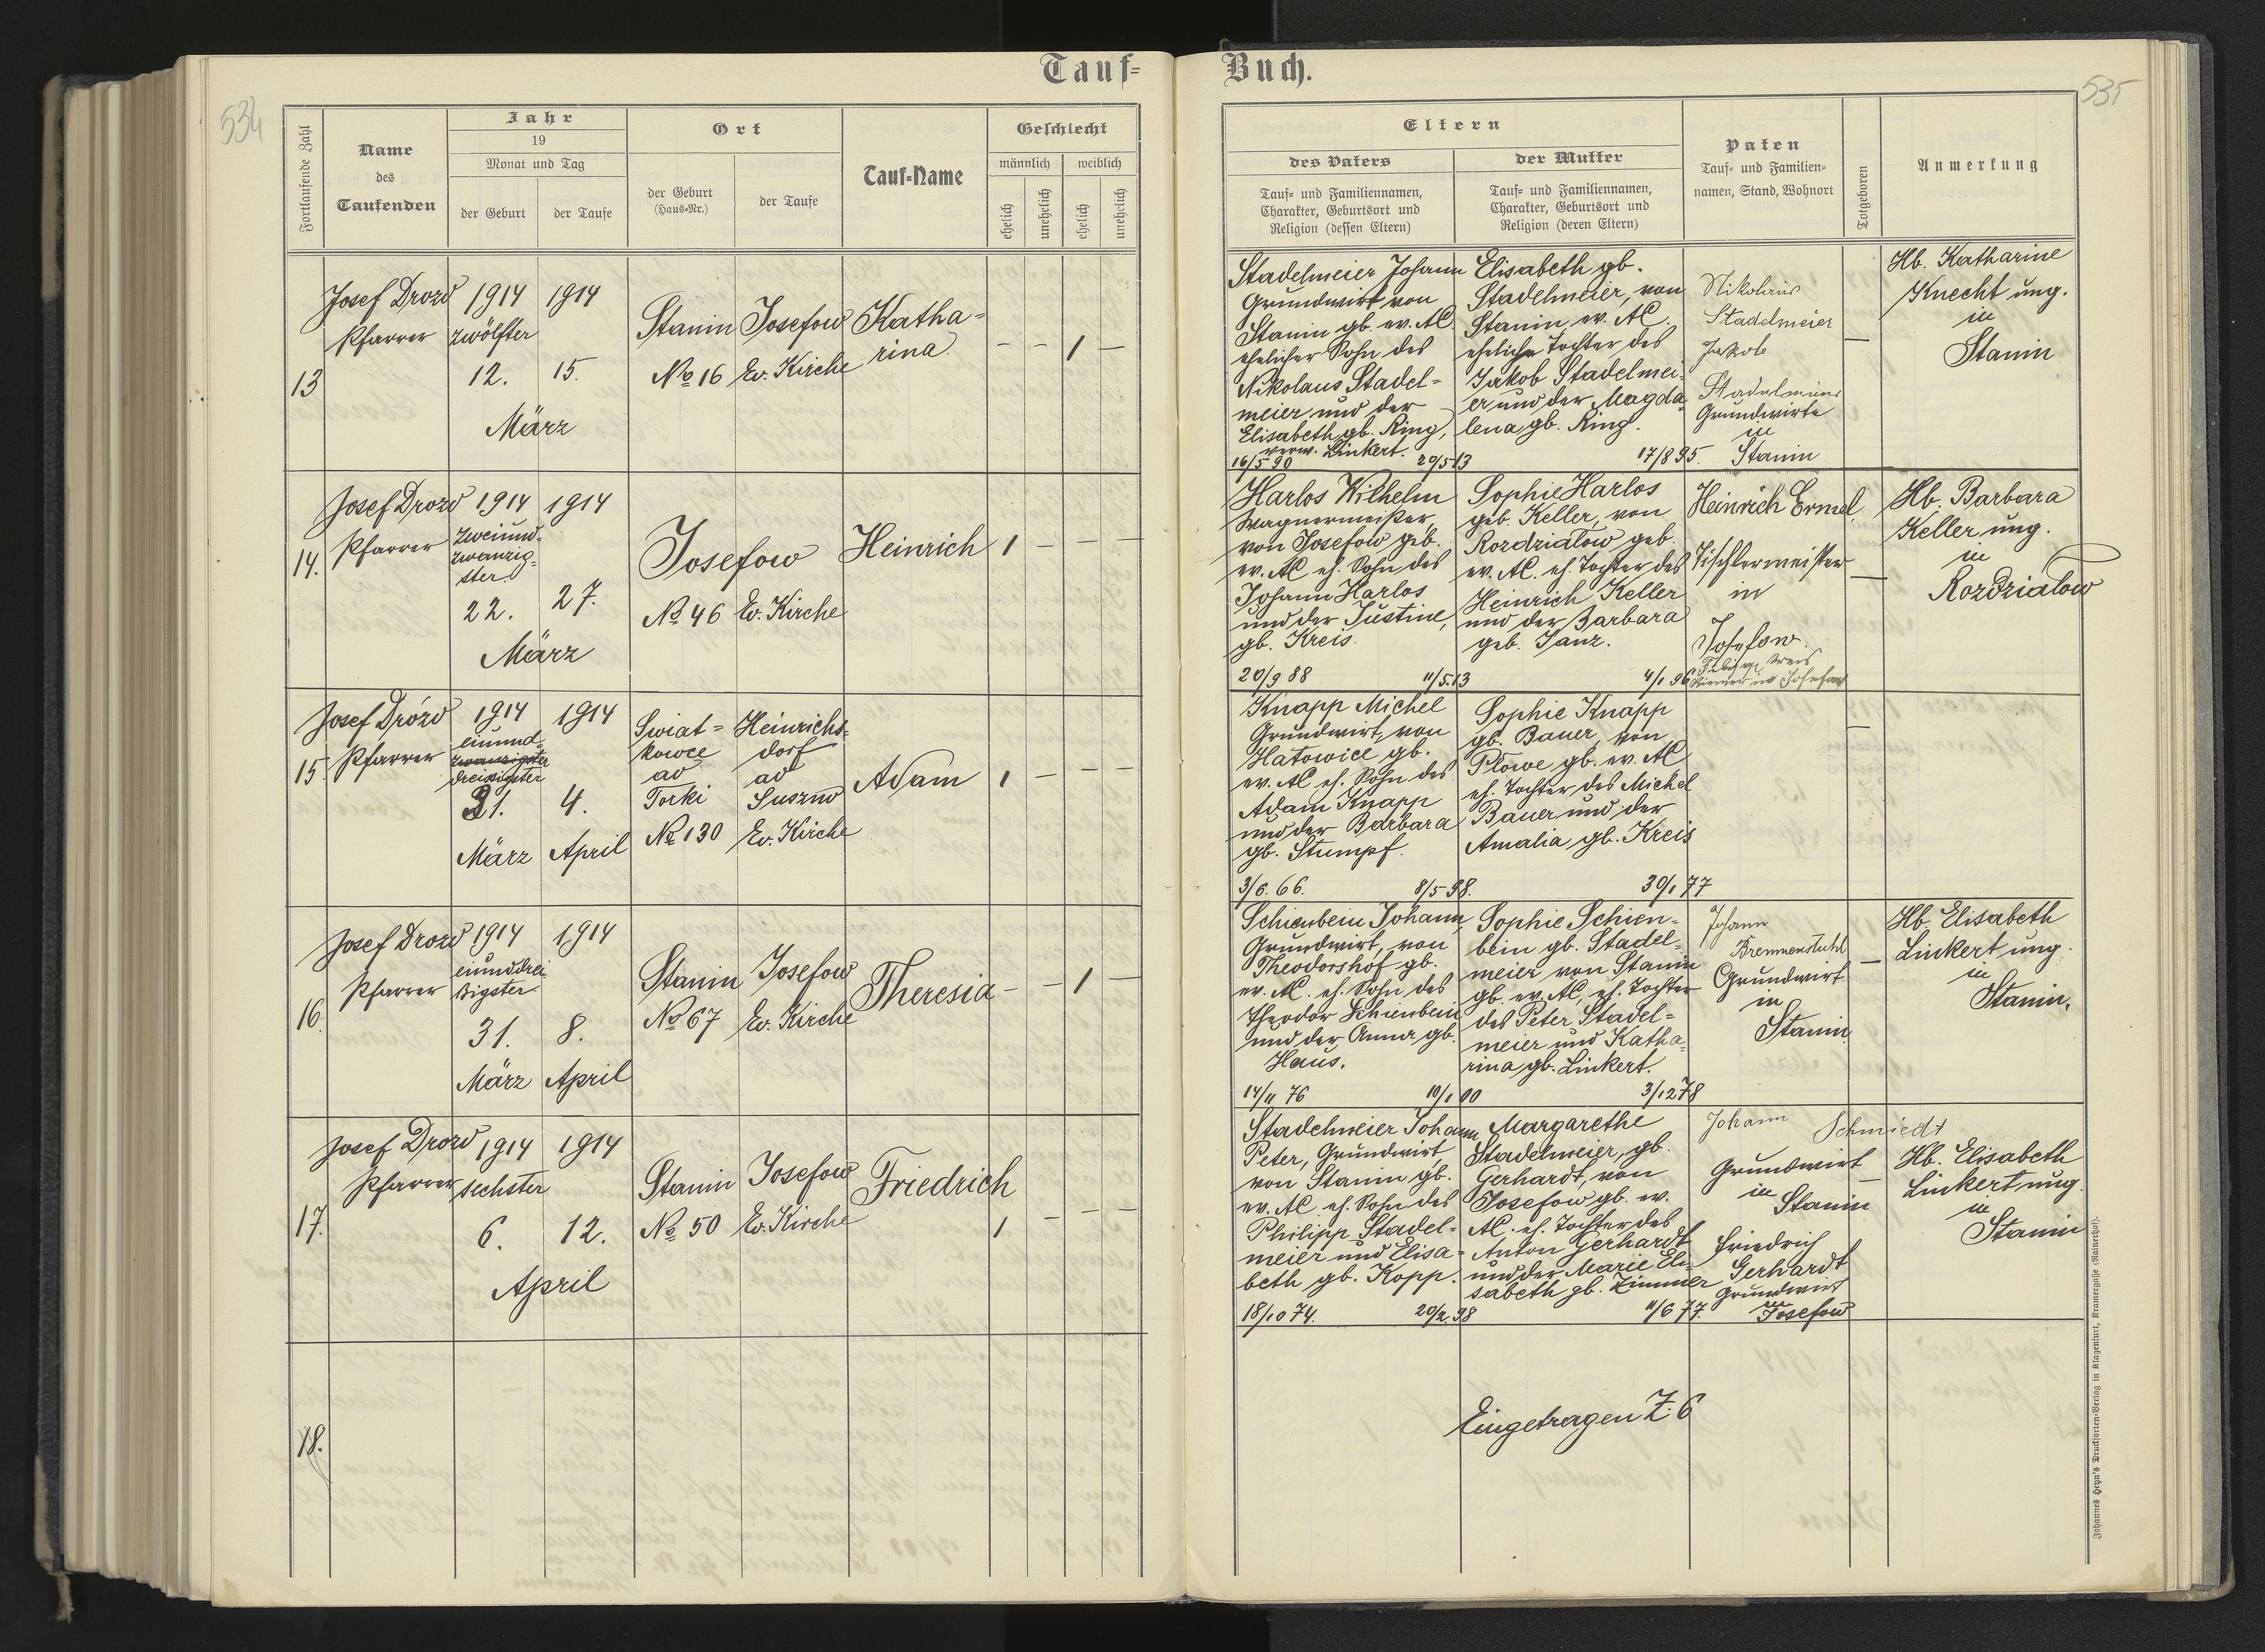 534
Tauf=
Fortlaufende Zahl
Name
des
Taufenden
Jahr
19
Monat und Tag
der Geburt
der Taufe
Ort
der Geburt
(Haus-Nr.)
der Taufe
Tauf-Name
Geschlecht
männlich
weiblich
ehelich
unehelich
ehelich
unehelich
13
Josef Drozd
Pfarrer
1914
zwölfter
12.
1914
15.
März
Stanin
No 16
Josefow
Ev. Kirche
Katha=
rina.
— — 1 —
14.
Josef Drozd
Pfarrer
1914
zweiund-
zwanzig-
ster
22.
1914
27.
März
Josefow
No 46 Ev. Kirche
Heinrich
1 — — —
15.
Josef Drózd
Pfarrer
1914
einund-
zwanzigster
dreissigster
31.
März
1914
4.
April
Swiat=
kowce
ad
Torki
No 130
Heinrichs-
dorf
ad
Suszno
Ev. Kirche
Adam
1 — — —
16.
Josef Drozd
Pfarrer
1914
einunddrei-
ßigster
31.
März
1914
8.
April
Stanin
No 67
Josefow
Ev. Kirche
Theresia
— — 1 —
17.
Josef Drozd
Pfarrer
1914
sechster
6.
1914
12.
April
Stanin
No 50
Josefow
Ev. Kirche
Friedrich
1 — — —
18.
535
Buch.
Eltern
des Vaters
Tauf= und Familiennamen,
Charakter, Geburtsort und
Religion (dessen Eltern)
der Mutter
Tauf= und Familiennamen,
Charakter, Geburtsort und
Religion (deren Eltern)
Paten
Tauf- und Familien-
namen, Stand, Wohnort
Totgeboren
Anmerkung
Stadelmeier Johann
Grundwirt von
Stanin gb. ev. AC.
ehelicher Sohn des
Nikolaus Stadel=
meier und der
Elisabeth gb. Ring,
verw. Linkert.
16/5 90 20/5 13
Elisabeth gb.
Stadelmeier, von
Stanin, ev. AC.
eheliche Tochter des
Jakob Stadelmei-
er und der Magda-
lena gb. Ring.
17/8 95.
Nikolaus
Stadelmeier
Jakob
Stadelmeier
Grundwirte
in
Stanin
—
Hb. Katharine
Knecht ung.
in
Stanin
Harlos Wilhelm
Wagnermeister,
von Josefow geb.
ev. AC eh. Sohn des
Johann Harlos
und der Justine,
gb. Kreis.
20/9 88 11/5.13
Sophie Harlos
geb. Keller, von
Rozdzialow geb.
ev. AC. eh. Tochter des
Heinrich Keller
und der Barbara
geb. Janz.
4/1 96
Heinrich Ermel,
Tischlermeister
in
Josefow.
—
Hb. Barbara
Keller ung.
in
Rozdzialow
Knapp Michel
Grundwirt, von
Hatowice gb.
ev. AC eh. Sohn des
Adam Knapp
und der Barbara
gb. Stumpf.
3/6. 66. 8/5 98.
Sophie Knapp
gb. Bauer, von
Plowe gb. ev. AC
eh. Tochter des Michel
Bauer und der
Amalia gb. Kreis
30/1 77
—
Schienbein Johann,
Grundwirt, von
Theodorshof gb.
ev. AC. eh. Sohn des
Theodor Schienbein
und der Anna gb.
Haus.
14/11 76 10/1 00
Sophie Schien-
bein gb. Stadel=
meier von Stanin
gb. ev. AC, eh. Tochter
des Peter Stadel=
meier und Katha-
rina gb. Linkert.
3/12 78
Johann
Bremmenstuhl
Grundwirt
in
Stanin
—
Hb. Elisabeth
Linkert ung.
in
Stanin.
Stadelmeier Johann
Peter, Grundwirt,
von Stanin gb.
ev. AC. eh. Sohn des
Philipp Stadel=
meier und Elisa=
beth gb. Kopp.
18/10 74. 20/2.98
Margarethe
Stadelmeier, gb.
Gerhardt, von
Josefow gb. ev.
AC. eh. Tochter des
Anton Gerhardt
und der Marie Eli-
sabeth gb. Zimmer
11/6 77.
Johann Schmiedt
Grundwirt
in
Stanin
Friedrich
Gerhardt
Grundwirt
in
Josefow
—
Hb. Elisabeth
Linkert ung.
in
Stanin
Eingetragen Z. 6
Johannes Heyn's Drucksorten-Verlag in Klagenfurt, Kramergasse (Rainerhof).